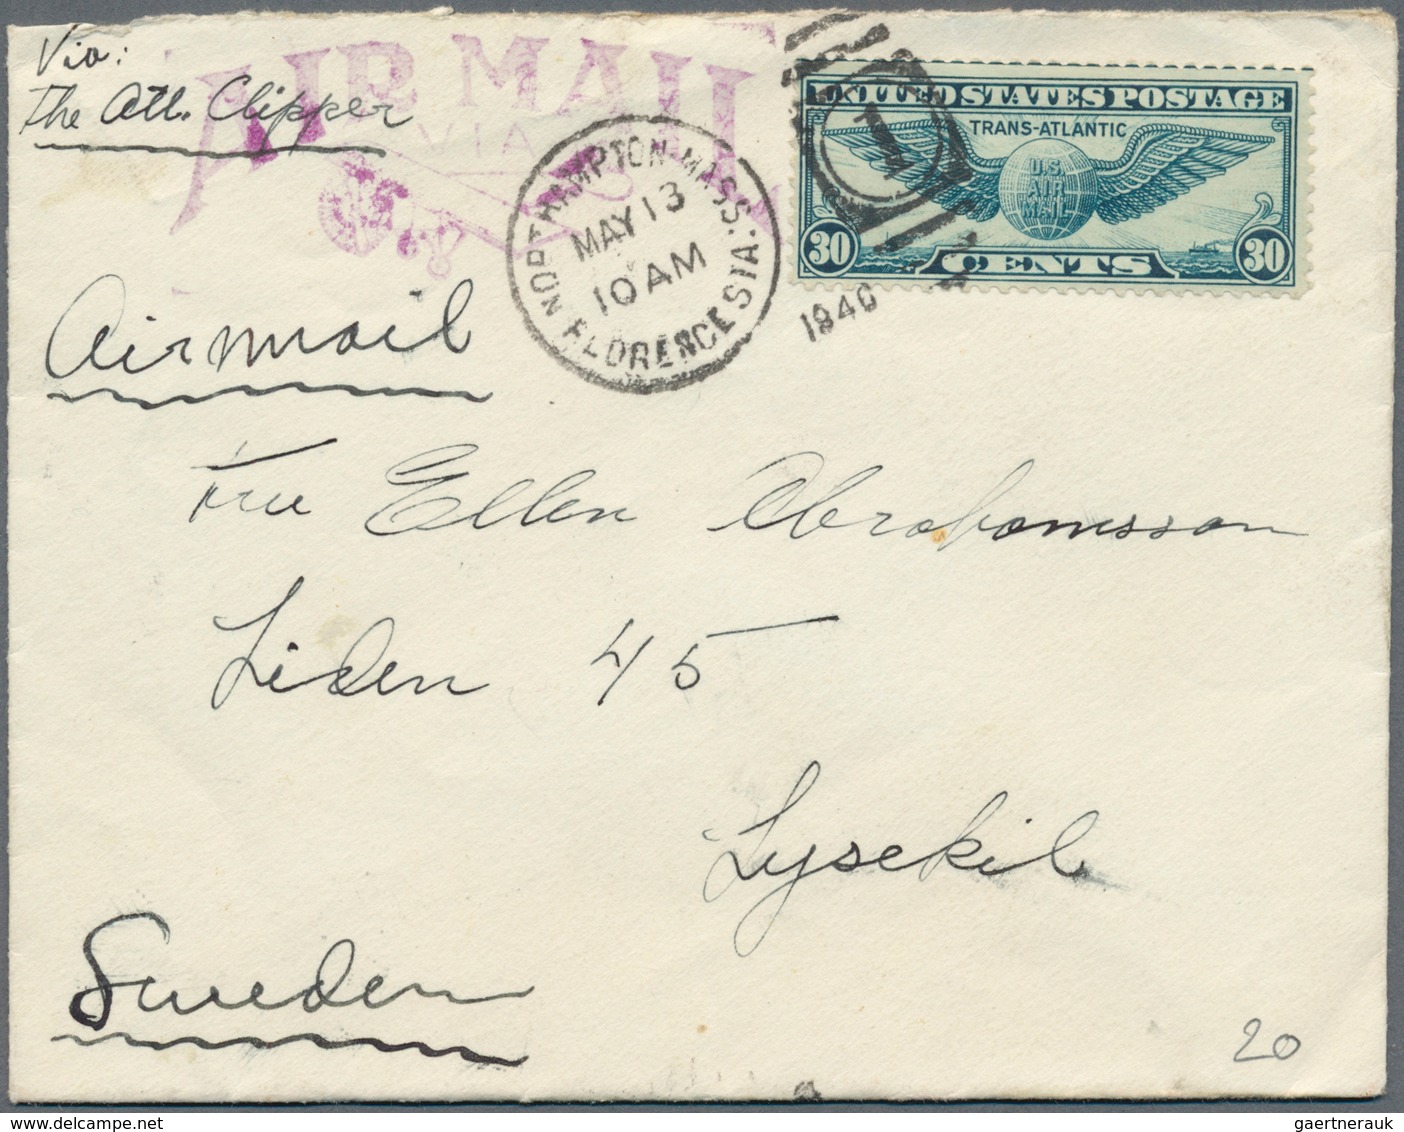 Via:
The Atl. Clipper
AIR MAIL
VIA
NORTHAMPTON MASS.
MAY 13
10 AM
FLORENCE STA.
1940
1
UNITED STATES POSTAGE
TRANS-ATLANTIC
U.S.
AIR
MAIL
30 CENTS 30
Airmail
Fru Ellen Abrahamsson
Liden 45
Lysekil
Sweden
20
gaertnerauk